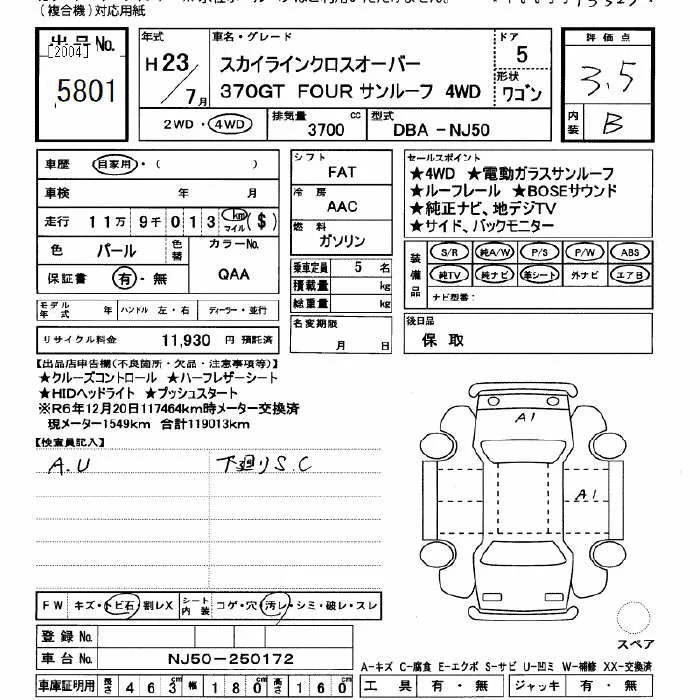 (複合機)対応用紙
出品No.
[2004]
5801
年式
H 23 / 7月
車名・グレード
スカイラインクロスオーバー
370GT FOUR サンルーフ 4WD
ドア
5
形状
ワゴン
2WD・4WD
排気量 3700 cc
型式 DBA-NJ50
評価点
3.5
内装 B
車歴 自家用・( )
車検 年 月
走行 11万 9千 013 km マイル ($)
色 パール 色替
カラーNo.
QAA
保証書 有・無
モデル年式 年 ハンドル 左・右 ディーラー・並行
リサイクル料金 11,930 円 預託済
シフト
FAT
冷房
AAC
燃料
ガソリン
乗車定員 5 名
積載量 kg
総重量 kg
名変期限
月 日
セールスポイント
★4WD ★電動ガラスサンルーフ
★ルーフレール ★BOSEサウンド
★純正ナビ、地デジTV
★サイド、バックモニター
装備品
S/R 純A/W P/S P/W ABS
純TV 純ナビ 革シート 外ナビ エアB
ナビ型番:
後日品
保 取
【出品店申告欄(不良箇所・欠品・注意事項等)】
★クルーズコントロール ★ハーフレザーシート
★HIDヘッドライト ★プッシュスタート
※R6年12月20日117464km時メーター交換済
現メーター1549km 合計119013km
【検査員記入】
A.U 下廻りS.C
A1
A1
FW キズ・トビ石・割レX
シート内装 コゲ・穴・汚レ・シミ・破レ・スレ
登録No.
車台No. NJ50-250172
車庫証明用 長さ 463cm 幅 180cm 高さ 160cm
スペア
A-キズ C-腐食 E-エクボ S-サビ U-凹ミ W-補修 XX-交換済
工具 有・無 ジャッキ 有・無